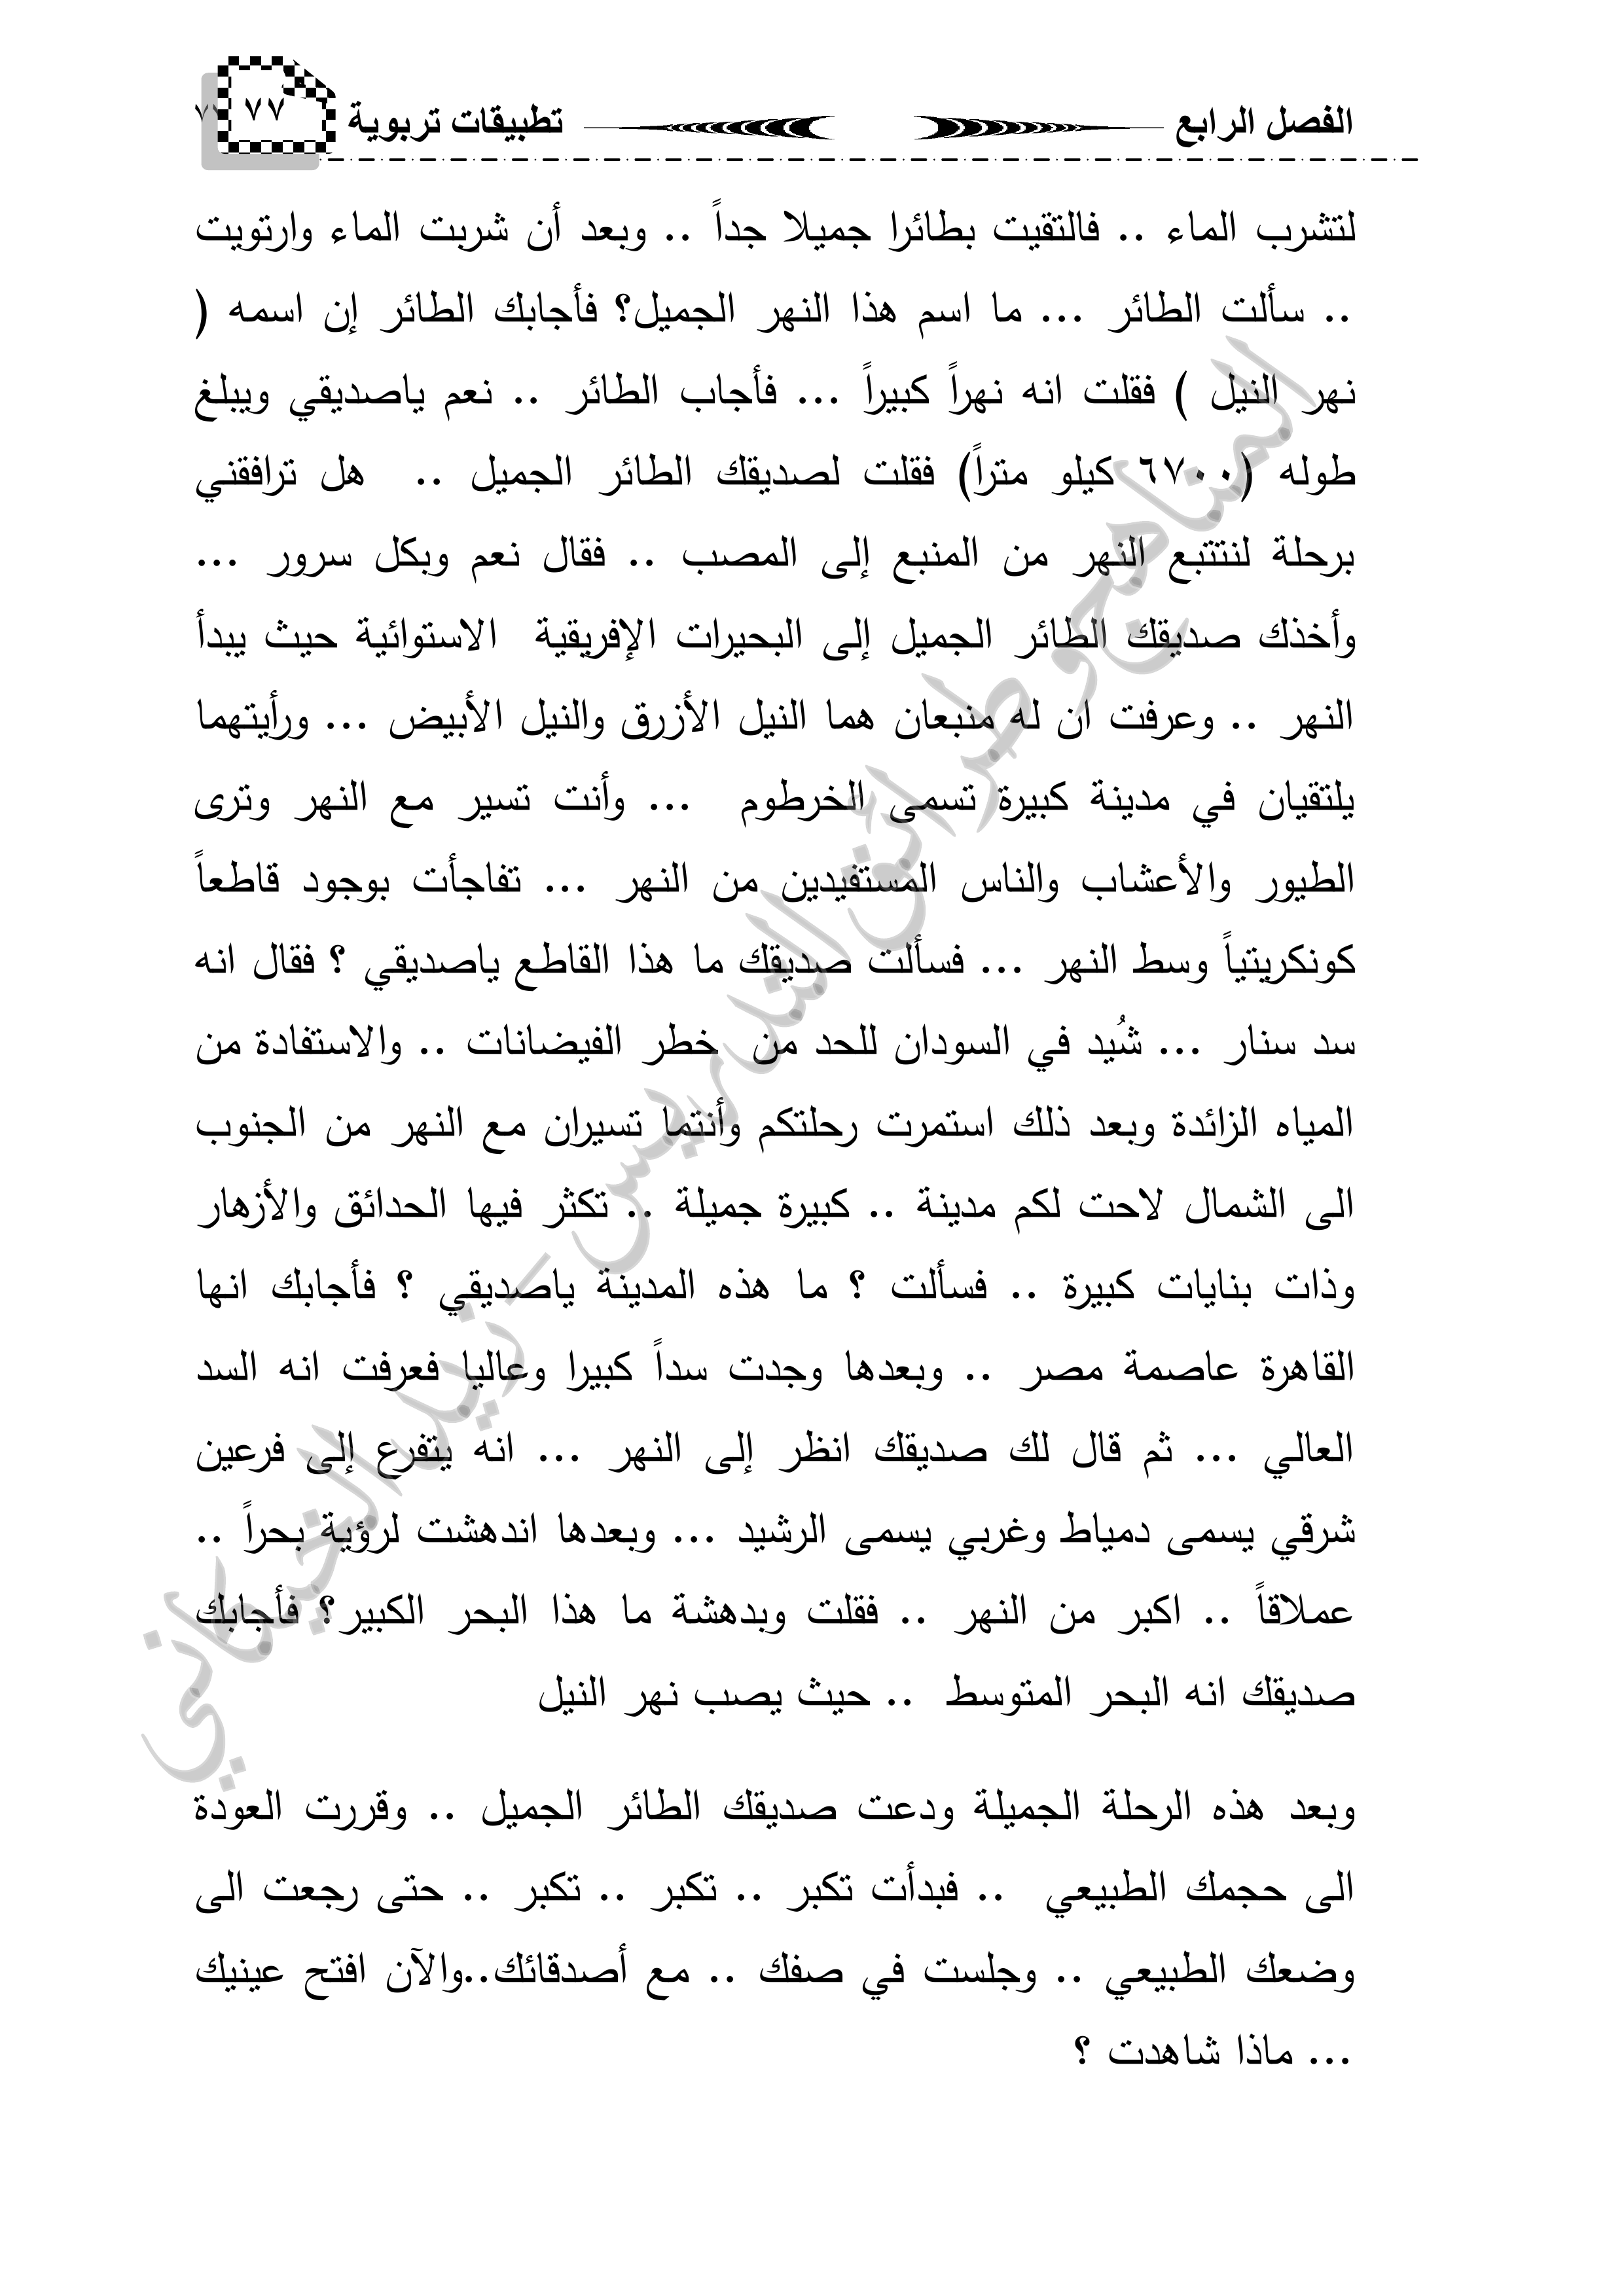 الفصل الرابع تطبيقات تربوية ٧٧
لتشرب الماء .. فالتقيت بطائرا جميلا جداً .. وبعد أن شربت الماء وارتويت
.. سألت الطائر ... ما اسم هذا النهر الجميل؟ فأجابك الطائر إن اسمه (
نهر النيل ) فقلت انه نهراً كبيراً ... فأجاب الطائر .. نعم ياصديقي ويبلغ
طوله (٦٧٠٠ كيلو متراً) فقلت لصديقك الطائر الجميل .. هل ترافقني
برحلة لنتتبع النهر من المنبع إلى المصب .. فقال نعم وبكل سرور ...
وأخذك صديقك الطائر الجميل إلى البحيرات الإفريقية الاستوائية حيث يبدأ
النهر .. وعرفت ان له منبعان هما النيل الأزرق والنيل الأبيض ... ورأيتهما
يلتقيان في مدينة كبيرة تسمى الخرطوم ... وأنت تسير مع النهر وترى
الطيور والأعشاب والناس المستفيدين من النهر ... تفاجأت بوجود قاطعاً
كونكريتياً وسط النهر ... فسألت صديقك ما هذا القاطع ياصديقي ؟ فقال انه
سد سنار ... شُيد في السودان للحد من خطر الفيضانات .. والاستفادة من
المياه الزائدة وبعد ذلك استمرت رحلتكم وأنتما تسيران مع النهر من الجنوب
الى الشمال لاحت لكم مدينة .. كبيرة جميلة .. تكثر فيها الحدائق والأزهار
وذات بنايات كبيرة .. فسألت ؟ ما هذه المدينة ياصديقي ؟ فأجابك انها
القاهرة عاصمة مصر .. وبعدها وجدت سداً كبيرا وعاليا فعرفت انه السد
العالي ... ثم قال لك صديقك انظر إلى النهر ... انه يتفرع إلى فرعين
شرقي يسمى دمياط وغربي يسمى الرشيد ... وبعدها اندهشت لرؤية بحراً ..
عملاقاً .. اكبر من النهر .. فقلت وبدهشة ما هذا البحر الكبير؟ فأجابك
صديقك انه البحر المتوسط .. حيث يصب نهر النيل
وبعد هذه الرحلة الجميلة ودعت صديقك الطائر الجميل .. وقررت العودة
الى حجمك الطبيعي .. فبدأت تكبر .. تكبر .. تكبر .. حتى رجعت الى
وضعك الطبيعي .. وجلست في صفك .. مع أصدقائك..والآن افتح عينيك
... ماذا شاهدت ؟
المناهج وطرائق التدريس - زيد الخيكاني